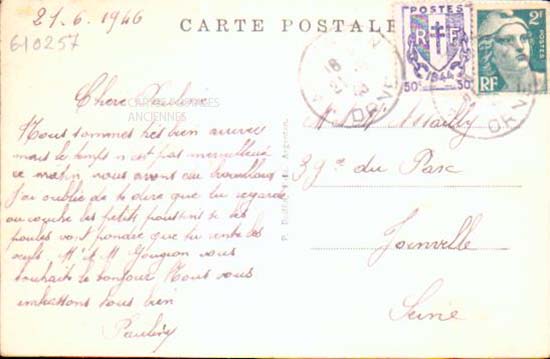 21.6.1946
610257
CARTE POSTALE
CARTES POSTALES
ANCIENNES
Chère Pauline
Nous sommes très bien arrivés
mais le temps n'est pas merveilleux
ce matin nous avons eu
J'ai oublié de te dire que tu regarde
ou couche les petits poussins si les
poules vont pondre que tu rentre les
oeufs Mr et M Gougeon vous
souhaite le bonjour Nous vous
embrassons tous bien
POSTES
RF
1944
50c 50c
2F
POSTES
RF
18
21
ORNE
ORNE
du Parc
Joinville
Seine